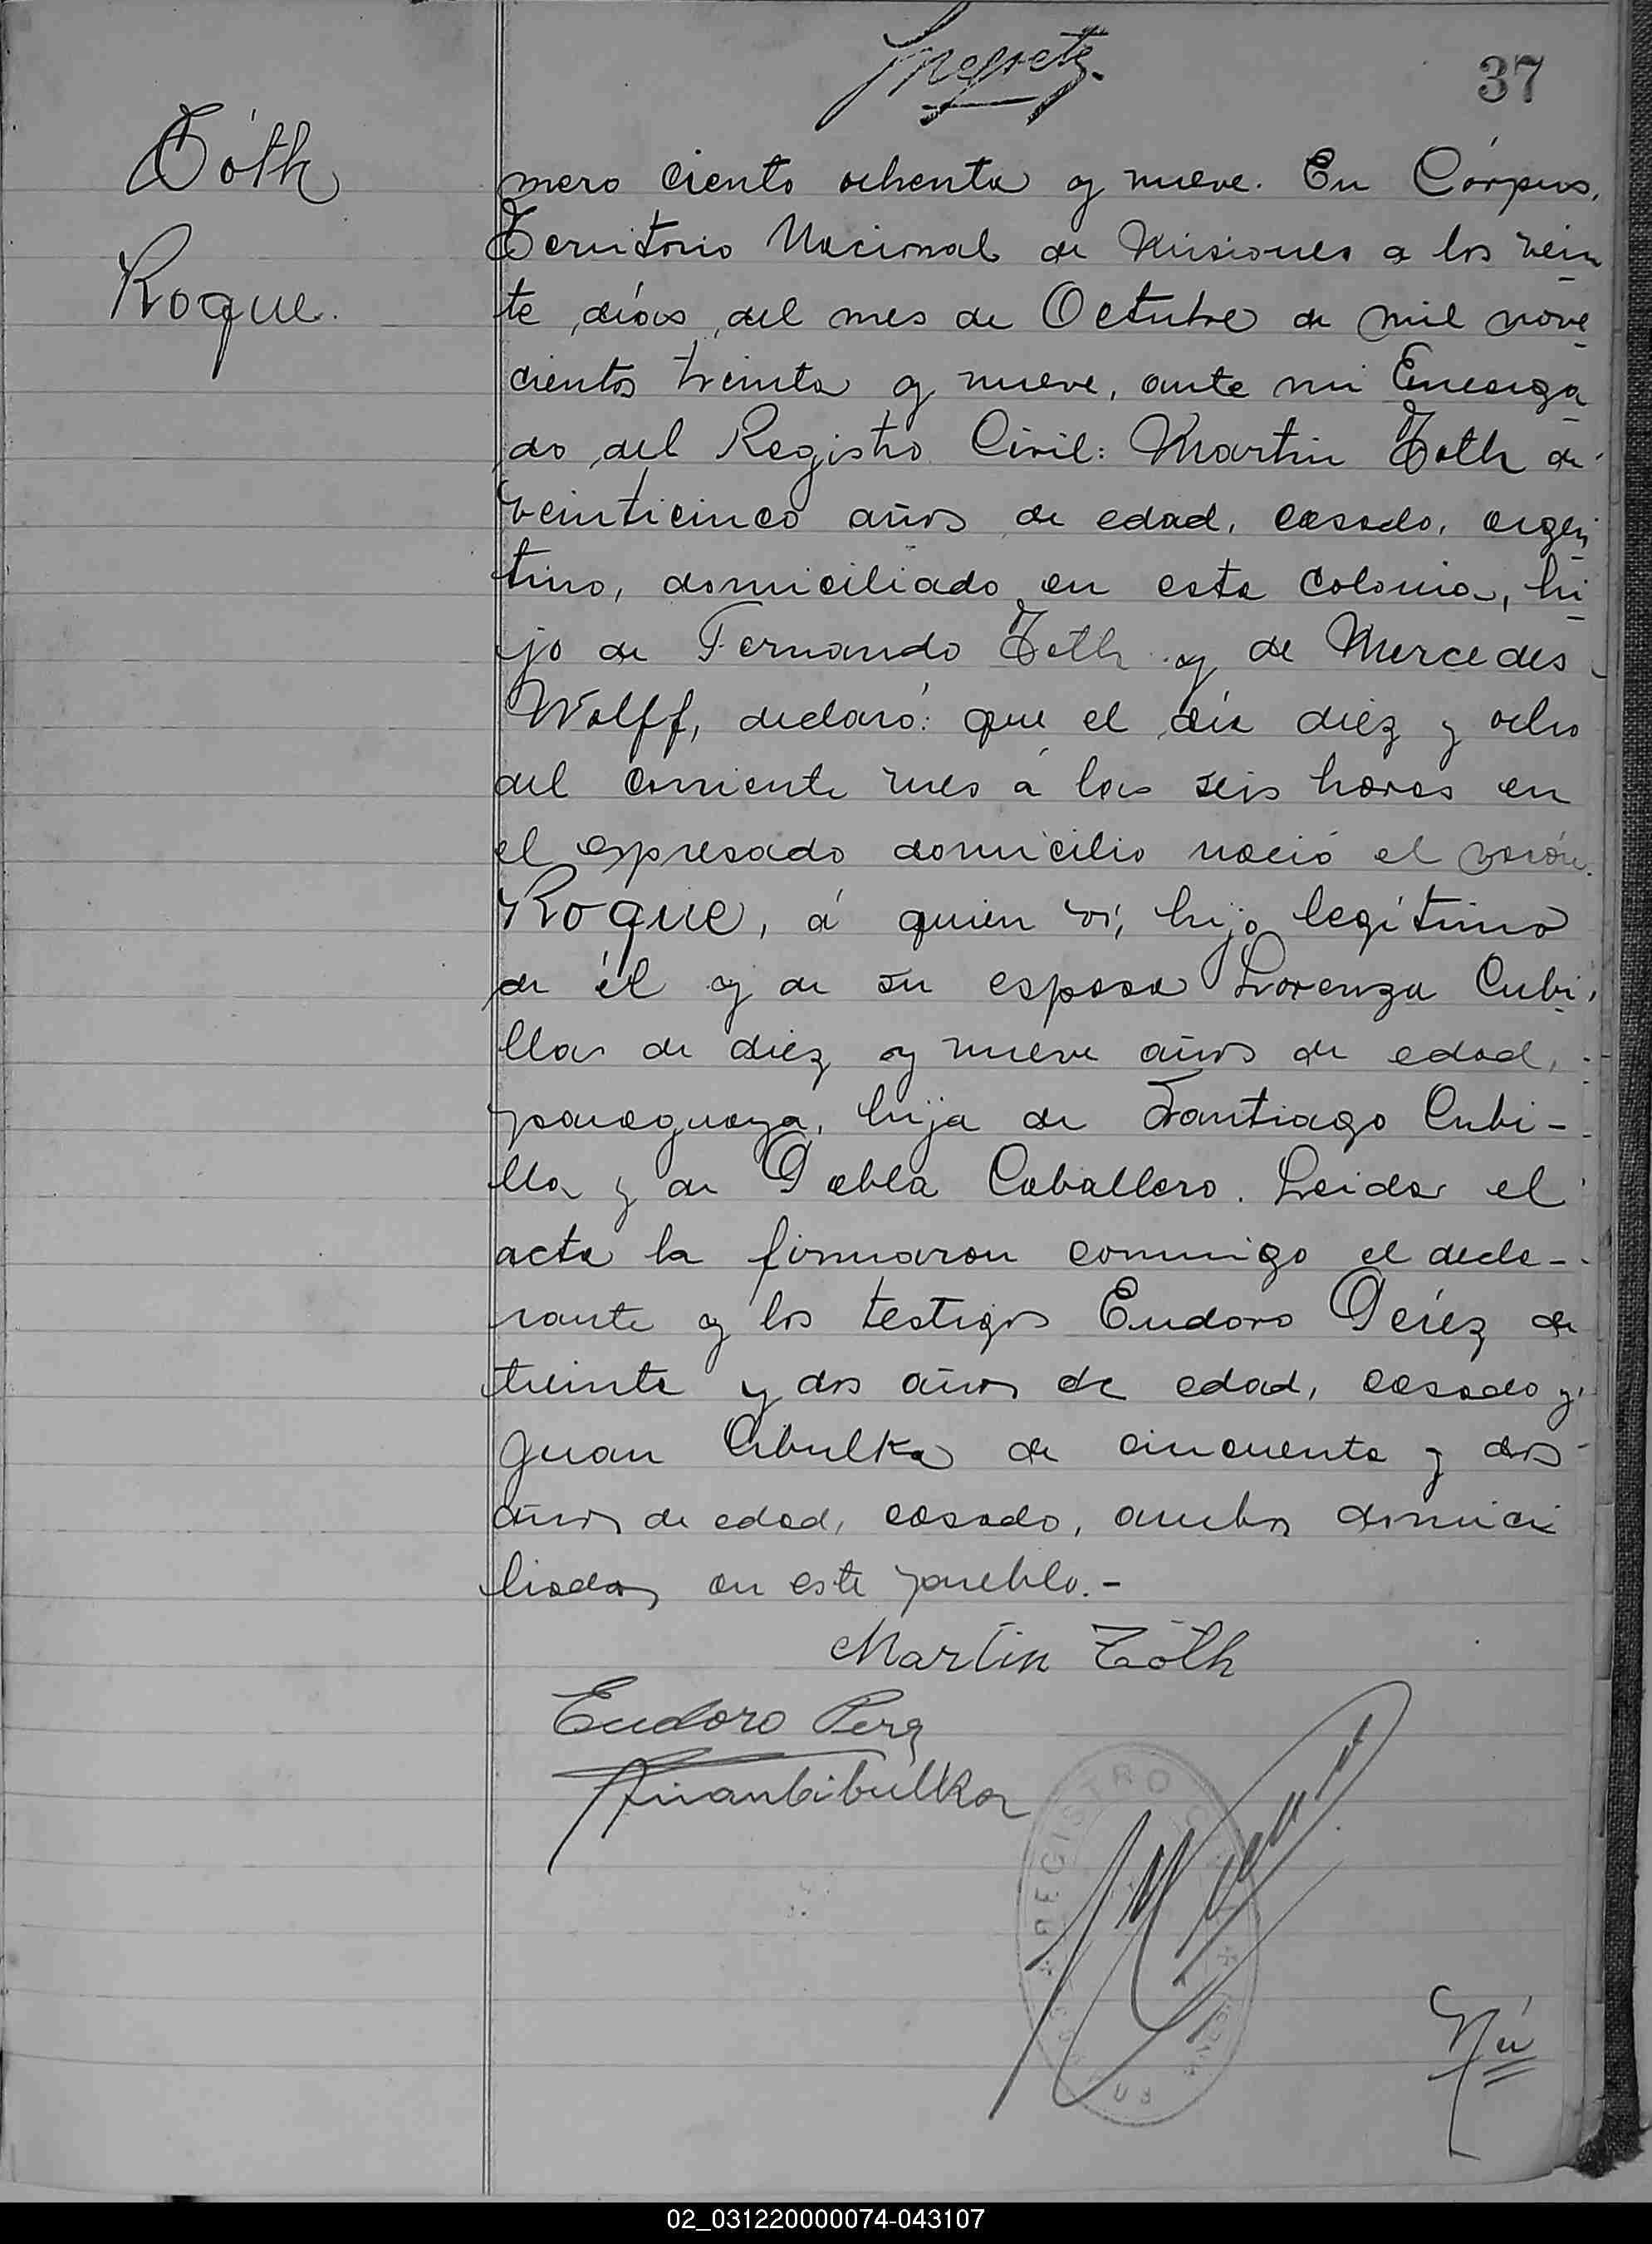 37
Tóth
Roque.
mero ciento ochenta y nueve. En Córpus,
Territorio Nacional de Misiones a los vein
te días del mes de Octubre de mil nove
cientos treinta y nueve, ante mi Encarga
do del Registro Civil: Martin Toth de
veinticinco años de edad, casado, argen
tino, domiciliado en esta Colonia, hi
jo de Fernando Toth y de Mercedes
Wolff, declaró: que el día diéz y ocho
del corriente mes a las seis horas en
el expresado domicilio nació el varón
Roque, á quien ví, hijo legítimo
de él y de su esposa Lorenza Cubi
lla de diéz y nueve años de edad,
paraguaya, hija de Santiago Cubi-
lla y de Pabla Caballero. Leida el
acta la firmaron conmigo el decla-
rante y los testigos Eudoro Pérez de
treinta y dos años de edad, casado y
Juan Cibulka de cincuenta y dos
años de edad, casado, ambos domici
liados en este pueblo.-
Martin Tóth
Eudoro Perez
Juan Cibulka
REGISTRO
Nú
02_031220000074-043107